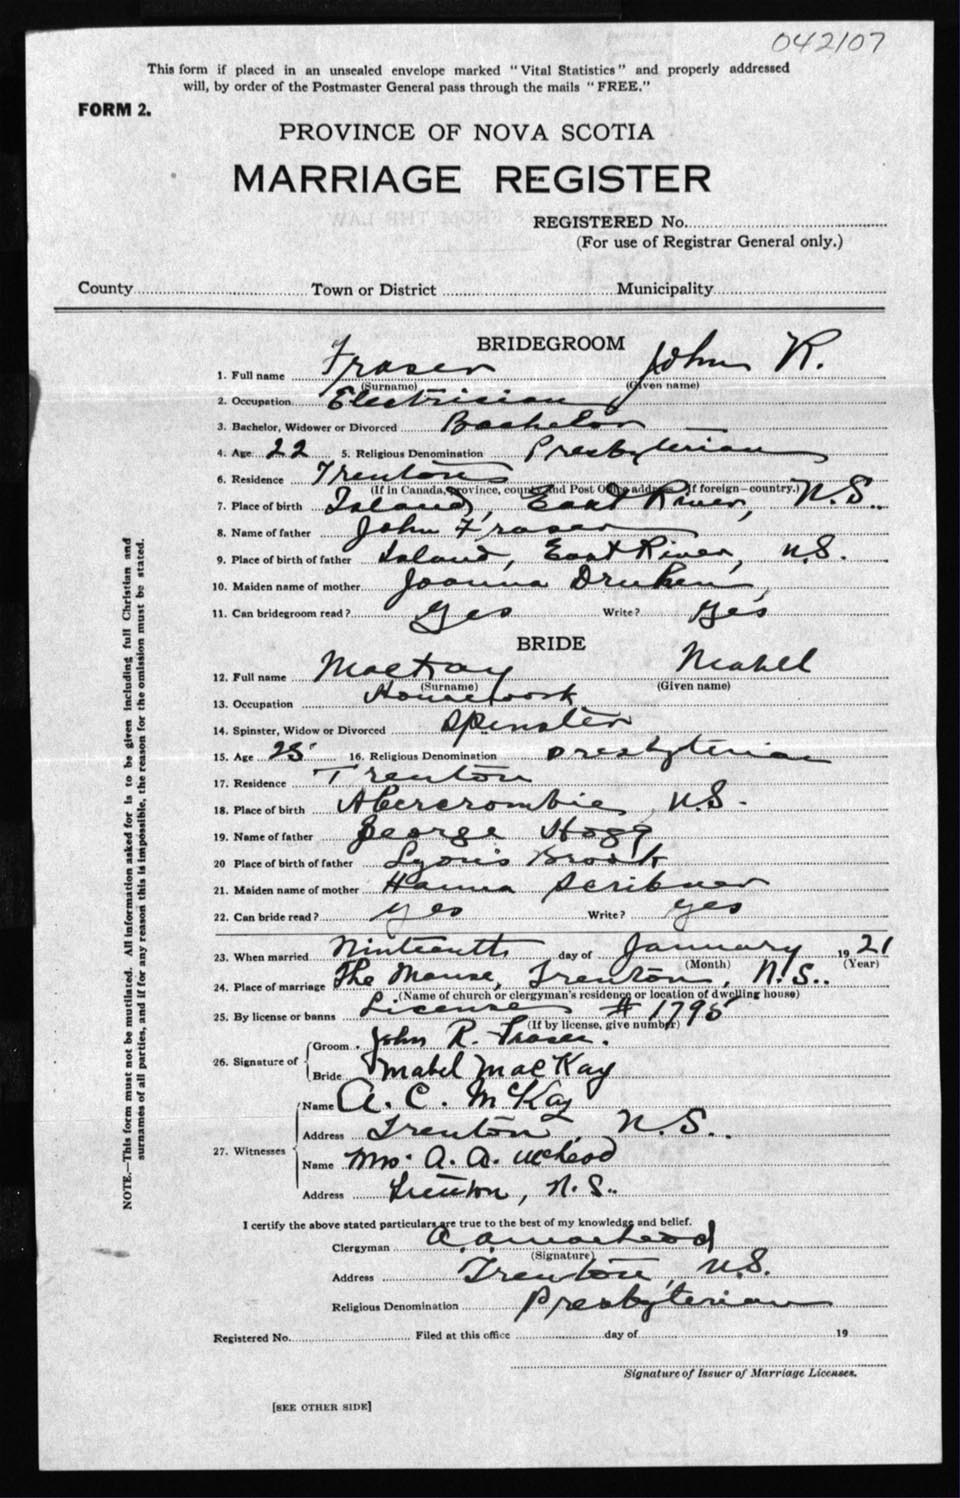 042107
This form if placed in an unsealed envelope marked "Vital Statistics" and properly addressed
will, by order of the Postmaster General pass through the mails "FREE."
FORM 2.
PROVINCE OF NOVA SCOTIA
MARRIAGE REGISTER
REGISTERED No.
(For use of Registrar General only.)
County Town or District Municipality
BRIDEGROOM
1. Full name Fraser John R.
(Surname) (Given name)
2. Occupation Electrician
3. Bachelor, Widower or Divorced Bachelor
4. Age 22 5. Religious Denomination Presbyterian
6. Residence Trenton
(If in Canada, province, county and Post Office address, if foreign—country.)
7. Place of birth Island, East River, N.S.
8. Name of father John Fraser
9. Place of birth of father Island, East River, N.S.
10. Maiden name of mother Joanna Druken
11. Can bridegroom read? Yes Write? Yes
BRIDE
12. Full name MacKay Mabell
(Surname) (Given name)
13. Occupation Housework
14. Spinster, Widow or Divorced Spinster
15. Age 25 16. Religious Denomination Presbyterian
17. Residence Trenton
18. Place of birth Abercrombie N.S.
19. Name of father George Hogg
20 Place of birth of father Lyons Brook
21. Maiden name of mother Hanna Scribner
22. Can bride read? yes Write? yes
23. When married Ninteenth day of January 1921
(Month) (Year)
24. Place of marriage The Manse, Trenton, N.S..
(Name of church or clergyman's residence or location of dwelling house)
25. By license or banns License # 1795
(If by license, give number)
26. Signature of Groom John R. Fraser.
Bride Mabel MacKay
27. Witnesses Name A. C. McKay
Address Trenton, N.S..
Name Mrs. A. D. McLeod
Address Trenton, N.S..
I certify the above stated particulars are true to the best of my knowledge and belief.
Clergyman A. D. MacLeod
(Signature)
Address Trenton, N.S.
Religious Denomination Presbyterian
Registered No. Filed at this office day of 19
Signature of Issuer of Marriage Licenses.
[SEE OTHER SIDE]
NOTE.—This form must not be mutilated. All information asked for is to be given including full Christian and
surnames of all parties, and if for any reason this is impossible, the reason for the omission must be stated.